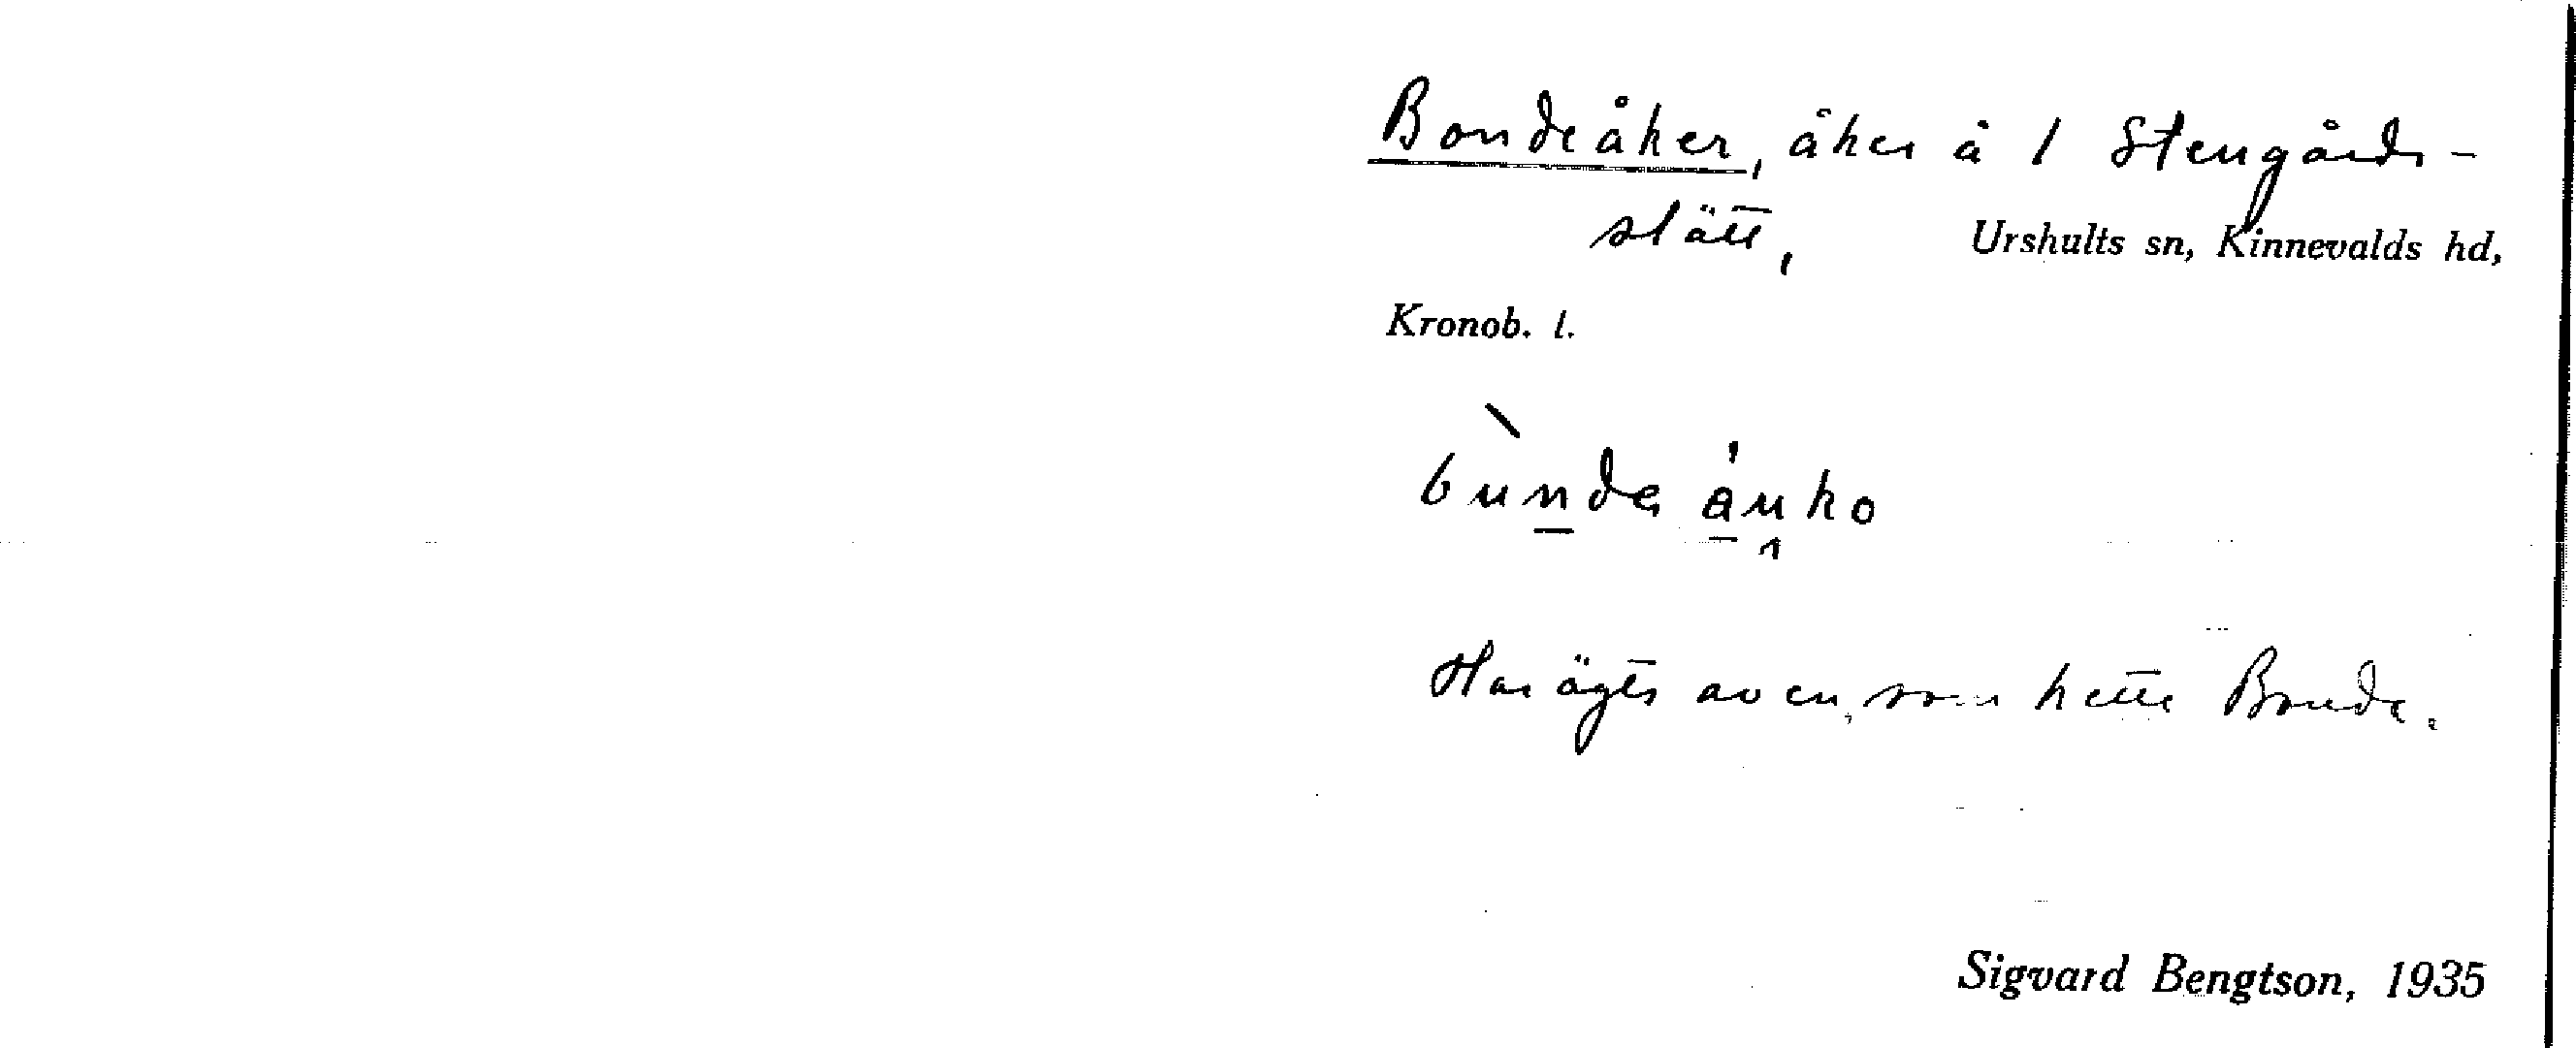 Bondeåker, åker å 1 Stengårds-
slätt, Urshults sn, Kinnevalds hd,
Kronob. l.
Har ägts av en, som hette Bonde.
Sigvard Bengtson, 1935